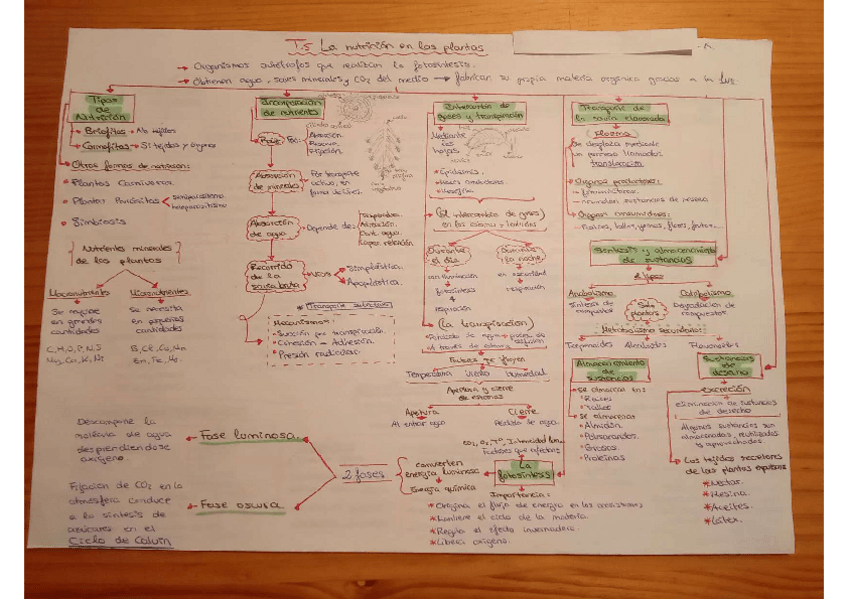 T.5 La nutrición en las plantas
→ Organismos autótrofos que realizan la fotosíntesis.
→ Obtienen agua, sales minerales y CO2 del medio → fabrican su propia materia orgánica gracias a la luz.
Tipos
de
Nutrición
→ Briofitas → No tejidos
→ Cormofitas → Si tejidos y órganos
→ Otras formas de nutrición:
• Plantas Carnívoras.
• Plantas Parásitas
• Simbiosis
Nutrientes minerales
de las plantas
Macronutrientes
Se requiere
en grandes
cantidades
C, H, O, P, N, S
Micronutrientes
Se necesita
en pequeñas
cantidades
Incorporación
de nutrientes
Raíz
Absorción
Reserva
Fijación
Absorción
de minerales
Por transporte
activo, en
forma de iones.
Absorción
de agua
Depende de:
Temperatura
Aireación
Cant. agua
Capac. retención
Recorrido
de la
savia bruta
Simplástica.
Apoplástica.
Mecanismos:
• Succión por transpiración.
• Cohesión - Adhesión.
• Presión radicular.
Intercambio de
gases y transpiración
Mediante
las
hojas
• Epidermis.
(El intercambio de gases)
en los estomas y lenticelas
Durante
el día
con iluminación
fotosíntesis
+
respiración
Durante
la noche
en oscuridad
respiración
(La transpiración)
Factores que influyen
Temperatura Viento Humedad
Apertura y cierre
de estomas
Apertura
Al entrar agua
Cierre
Pérdida de agua.
Factores que afectan
La
fotosíntesis
convierten
energía luminosa
Energía química
Importancia:
* Origina el flujo de energía en los ecosistemas
* Mantiene el ciclo de la materia.
* Regula el efecto invernadero.
* Libera oxígeno.
2 fases
Fase luminosa
Descompone la
molécula de agua
desprendiéndose
oxígeno.
Fase oscura
Fijación de CO2 en la
atmósfera conduce
a la síntesis de
azúcares en el
Ciclo de Calvin
Transporte de
la savia elaborada
Floema
Se desplaza mediante
un proceso llamado:
translocación
• Órganos productores:
• Órganos consumidores:
Síntesis y almacenamiento
de sustancias
Anabolismo
Síntesis de
compuestos
Catabolismo
Degradación de
compuestos
Metabolismo secundario:
Terpenoides Alcaloides Flavonoides
Almacenamiento
de
sustancias
→ Se almacena en:
• Raíces
• Tallos
→ Se almacenan
• Almidón
• Polisacáridos.
• Grasas
• Proteínas
Sustancias
de
desecho
excreción
eliminación de sustancias
de desecho
Algunas sustancias son
almacenadas, reutilizadas
o aprovechadas.
→ Los tejidos secretores
de las plantas expulsan
* Néctar.
* Resina.
* Aceites.
* Látex.